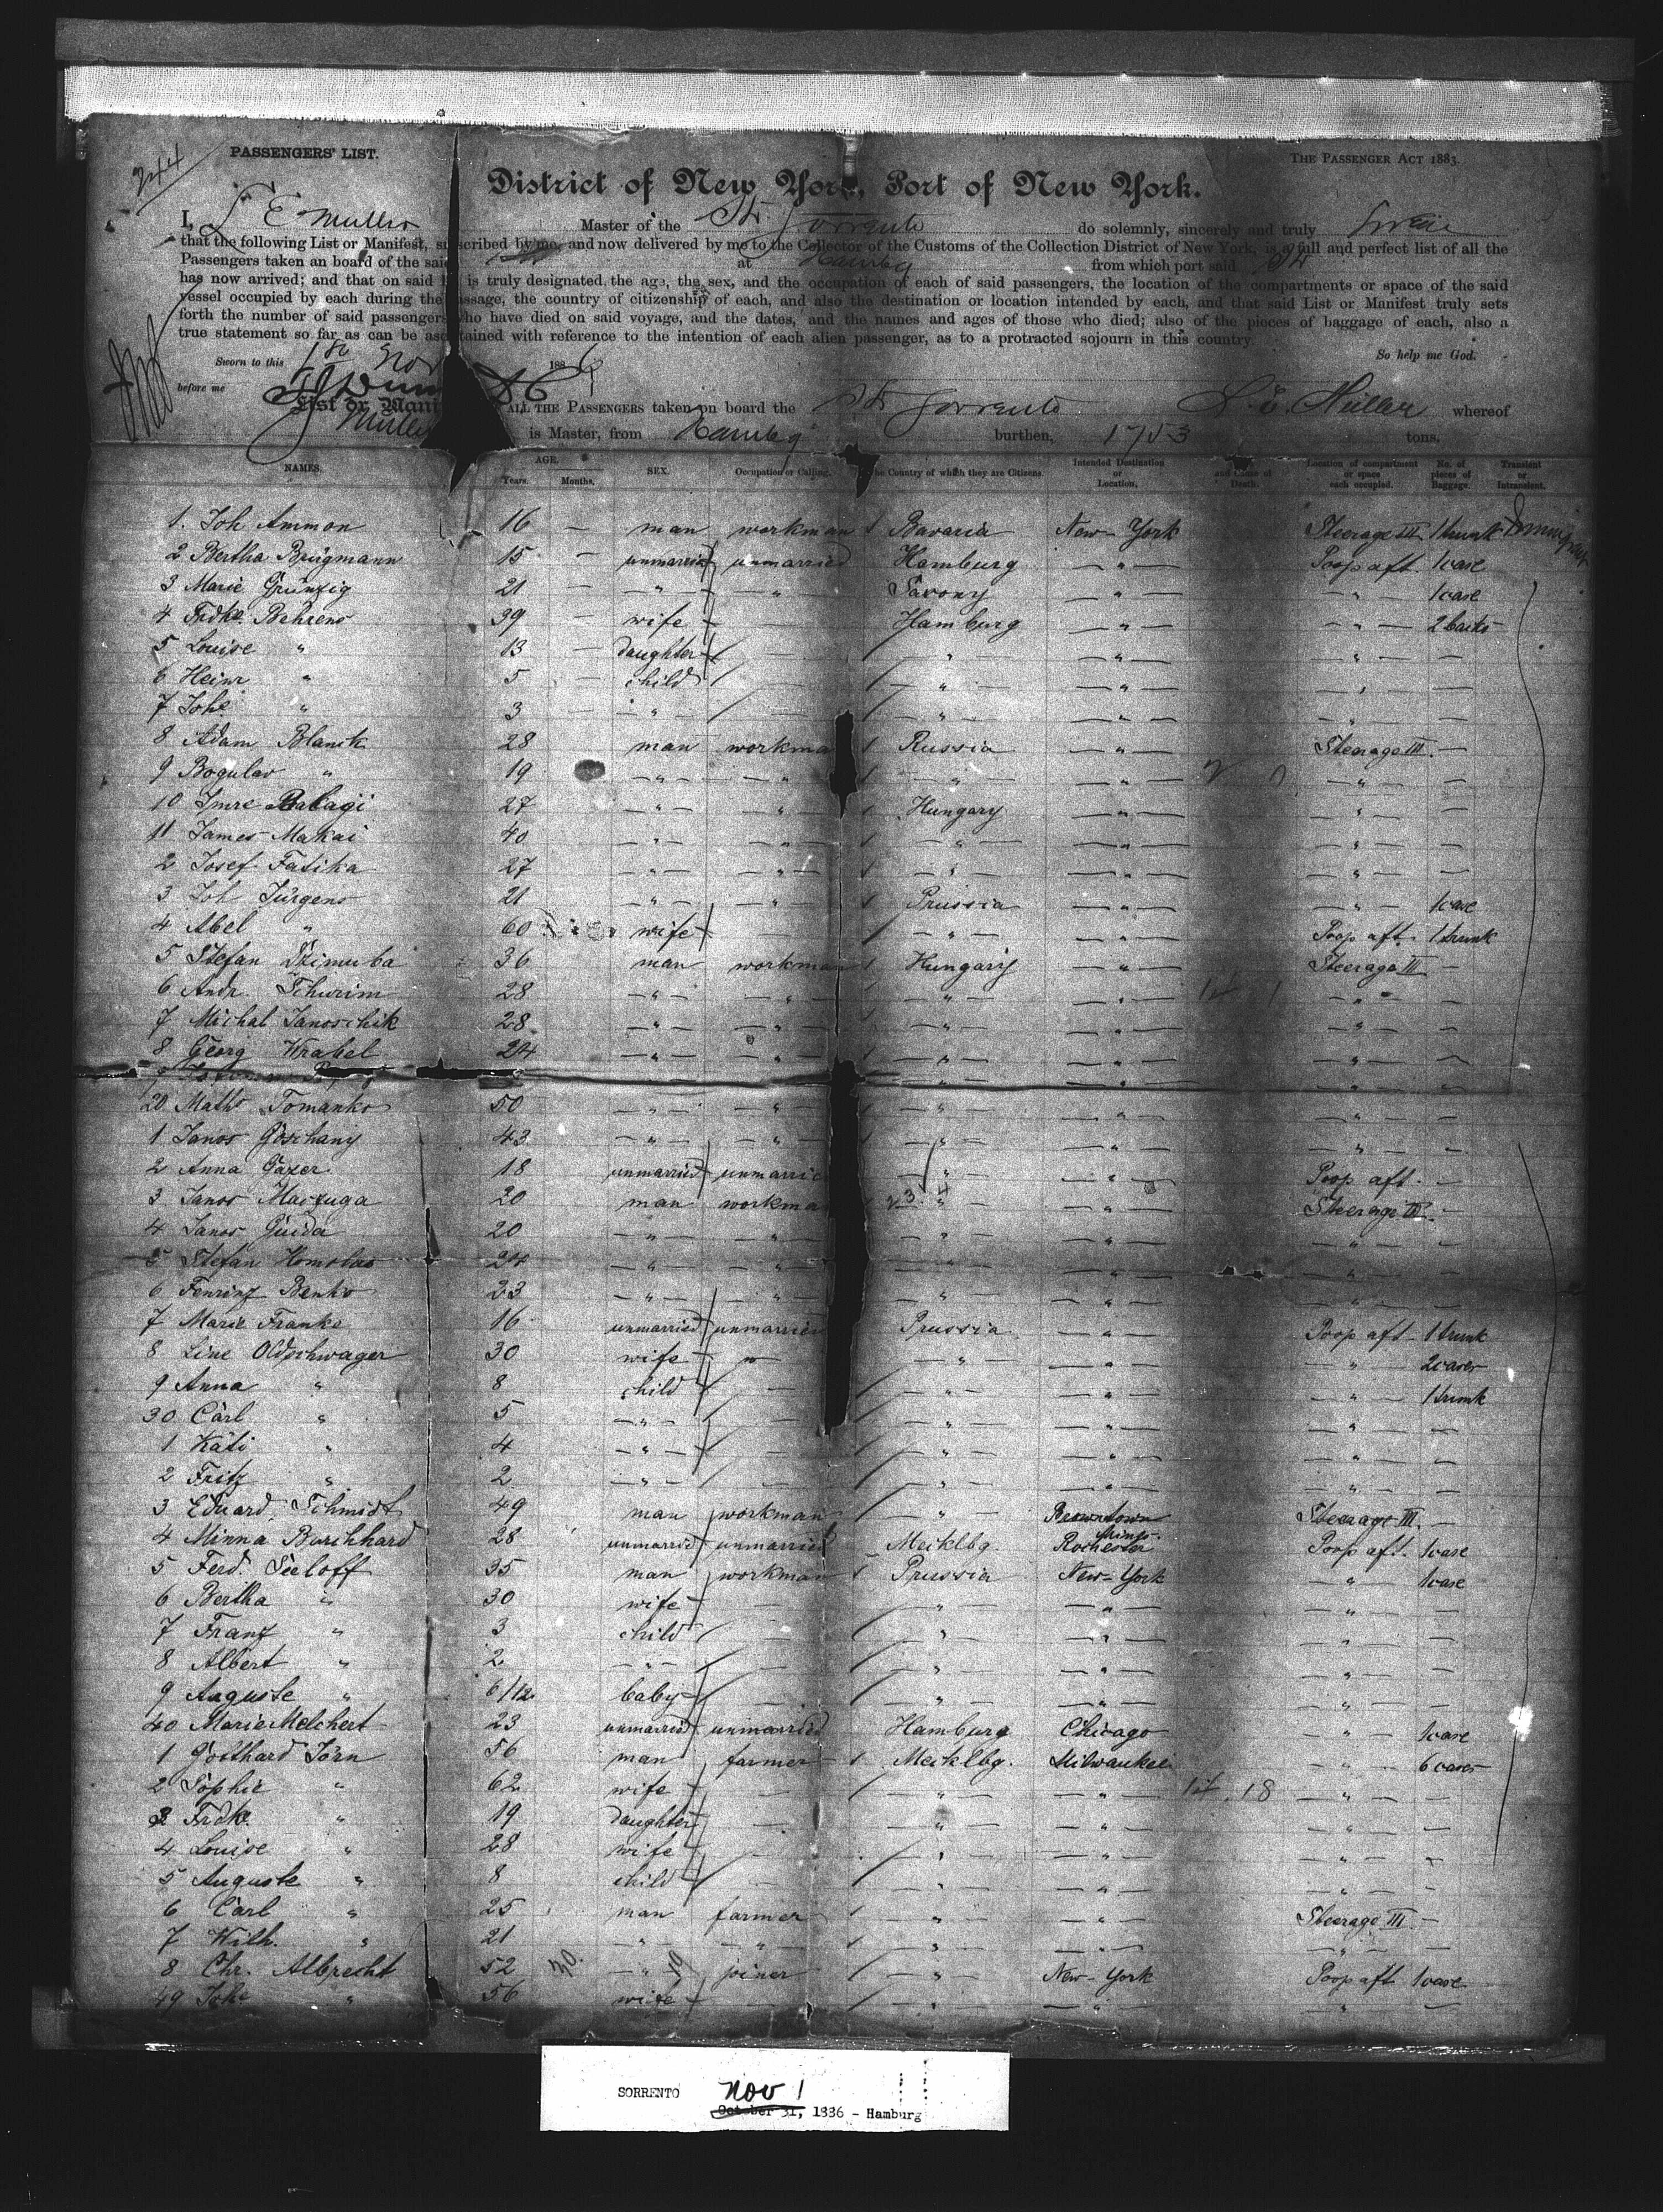 244
PASSENGERS' LIST.
THE PASSENGER ACT 1883.
District of New York, Port of New York.
I, L E Muller Master of the Str Sorrento do solemnly, sincerely and truly swear
that the following List or Manifest, subscribed by me, and now delivered by me to the Collector of the Customs of the Collection District of New York, is a full and perfect list of all the
Passengers taken on board of the said Str at Hambg from which port said Str
has now arrived; and that on said list is truly designated the age, the sex, and the occupation of each of said passengers, the location of the compartments or space of the said
vessel occupied by each during the passage, the country of citizenship of each, and also the destination or location intended by each, and that said List or Manifest truly sets
forth the number of said passengers who have died on said voyage, and the dates, and the names and ages of those who died; also of the pieces of baggage of each, also a
true statement so far as can be ascertained with reference to the intention of each alien passenger, as to a protracted sojourn in this country.
So help me God.
Sworn to this 1st Nov 1886
before me
L. E. Müller
List or Mani ALL THE PASSENGERS taken on board the Str Sorrento L. E. Müller whereof
is Master, from Hambg burthen, 1753 tons,
NAMES. AGE. Years. Months. SEX. Occupation or Calling. The Country of which they are Citizens. Intended Destination or Location, and Cause of Death. Location of compartment or space each occupied. No. of pieces of Baggage. Transient or Intransient.
1. Joh Ammon 16 — man workman Bavaria New-York Steerage III 1 trunk
2 Bertha Brügmann 15 — unmarried unmarried Hamburg — " — Poop aft. 1 case
3 Marie Grünzig 21 — " — — " — Saxony — " — — " — 1 case
4 Frdke Behrens 39 — wife — Hamburg — " — — " — 2 backs
5 Louise " 13 — daughter — " — " — — " — —
6 Heinr " 5 — child — — " — — " — — " — —
7 Johs " 3 — — " — — — " — — " — — " — —
8 Adam Blanck 28 man workman Russia — " — Steerage III. —
9 Bogulav " 19 — " — — " — — " — — " — — " — —
10 Imre Balagi 27 — " — " Hungary — " — — " — —
11 James Makai 40 — " — — " — — " — — " — — " — —
2 Josef Fatika 27 — " — — " — — " — — " — — " — —
3 Joh Jürgens 21 — " — — " — Prussia — " — — " — 1 case
4 Abel " 60 wife — — " — — " — Poop aft. 1 trunk
5 Stefan Dzimuba 36 man workman Hungary — " — Steerage III —
6 Andr. Schurim 28 — " — — " — — " — — " — — " — —
7 Michal Janoschik 28 — " — — " — — " — — " — — " — —
8 Georg Wrabel 24 — " — — " — — " — — " — — " — —
20 Maths Tomanko 50 — " — — " — — " — — " — — " — —
1 Janos Göschany 43 — " — — " — — " — — " — — " — —
2 Anna Gazer 18 unmarried unmarried — " — — " — Poop aft. —
3 Janos Maczuga 20 man workman " — " — Steerage III. —
4 Janos Guida 20 — " — — " — — " — — " — — " — —
5 Stefan Homolas 24 — " — — " — — " — — " — — " — —
6 Ferring Benko 23 — " — — " — — " — — " — — " — —
7 Marie Franke 16 unmarried unmarried Prussia — " — Poop aft 1 trunk
8 Line Oldschwager 30 wife — — " — — " — — " — 2 cases
9 Anna " 8 child — — " — — " — — " — 1 trunk
30 Carl " 5 — " — — — " — — " — — " — —
1 Käti " 4 — " — — — " — — " — — " — —
2 Fritz " 2 — " — — — " — — " — — " — —
3 Eduard Schmidt 49 man workman — " — Browntown Steerage III. —
4 Minna Burchhard 28 unmarried unmarried Mecklbg. Rochester Minns. Poop aft. 1 case
5 Ferd. Seeloff 35 man workman Prussia New-York — " — 1 case
6 Bertha " 30 wife — — " — — " — — " — —
7 Franz " 3 child — — " — — " — — " — —
8 Albert " 2 — " — — — " — — " — — " — —
9 Auguste " 6/12 baby — — " — — " — — " — —
40 Marie Melchert 23 unmarried unmarried Hamburg Chicago — " — 1 case
1 Gotthard Törn 56 man farmer Mecklbg. Milwaukee — " — 6 cases
2 Sophie " 62 wife — — " — — " — — " — —
3 Frdk. " 19 daughter — — " — — " — — " — —
4 Louise " 28 wife — — " — — " — — " — —
5 Auguste " 8 child — — " — — " — — " — —
6 Carl " 25 man farmer — " — — " — Steerage III. —
7 Wilh. " 21 — " — — " — — " — — " — — " — —
8 Chr. Albrecht 52 — " — joiner — " — New-York Poop aft 1 case
49 Johe " 56 wife — — " — — " — — " — —
SORRENTO Nov 1
October 31, 1886 - Hamburg